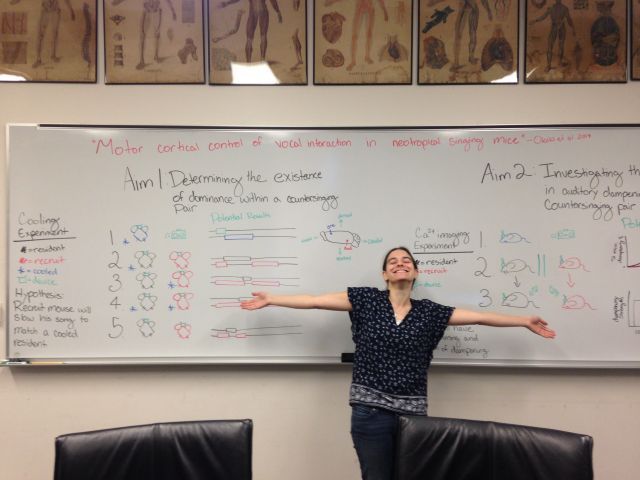 "Motor cortical control of vocal interaction in neotropical singing mice" - Okobi et al 2019
Aim 1: Determining the existence
of dominance within a countersinging
pair
Cooling
Experiment
= resident
= recruit
= cooled
= device
Hypothesis:
Recruit mouse will
slow his song to
match a cooled
resident
1.
2.
3.
4.
5.
Potential Results
Ca²⁺ imaging
Experiment
= resident
= recruit
= device
have
and
of dampening
Aim 2: Investigating th
in auditory dampenin
Countersinging pair
1.
2
3